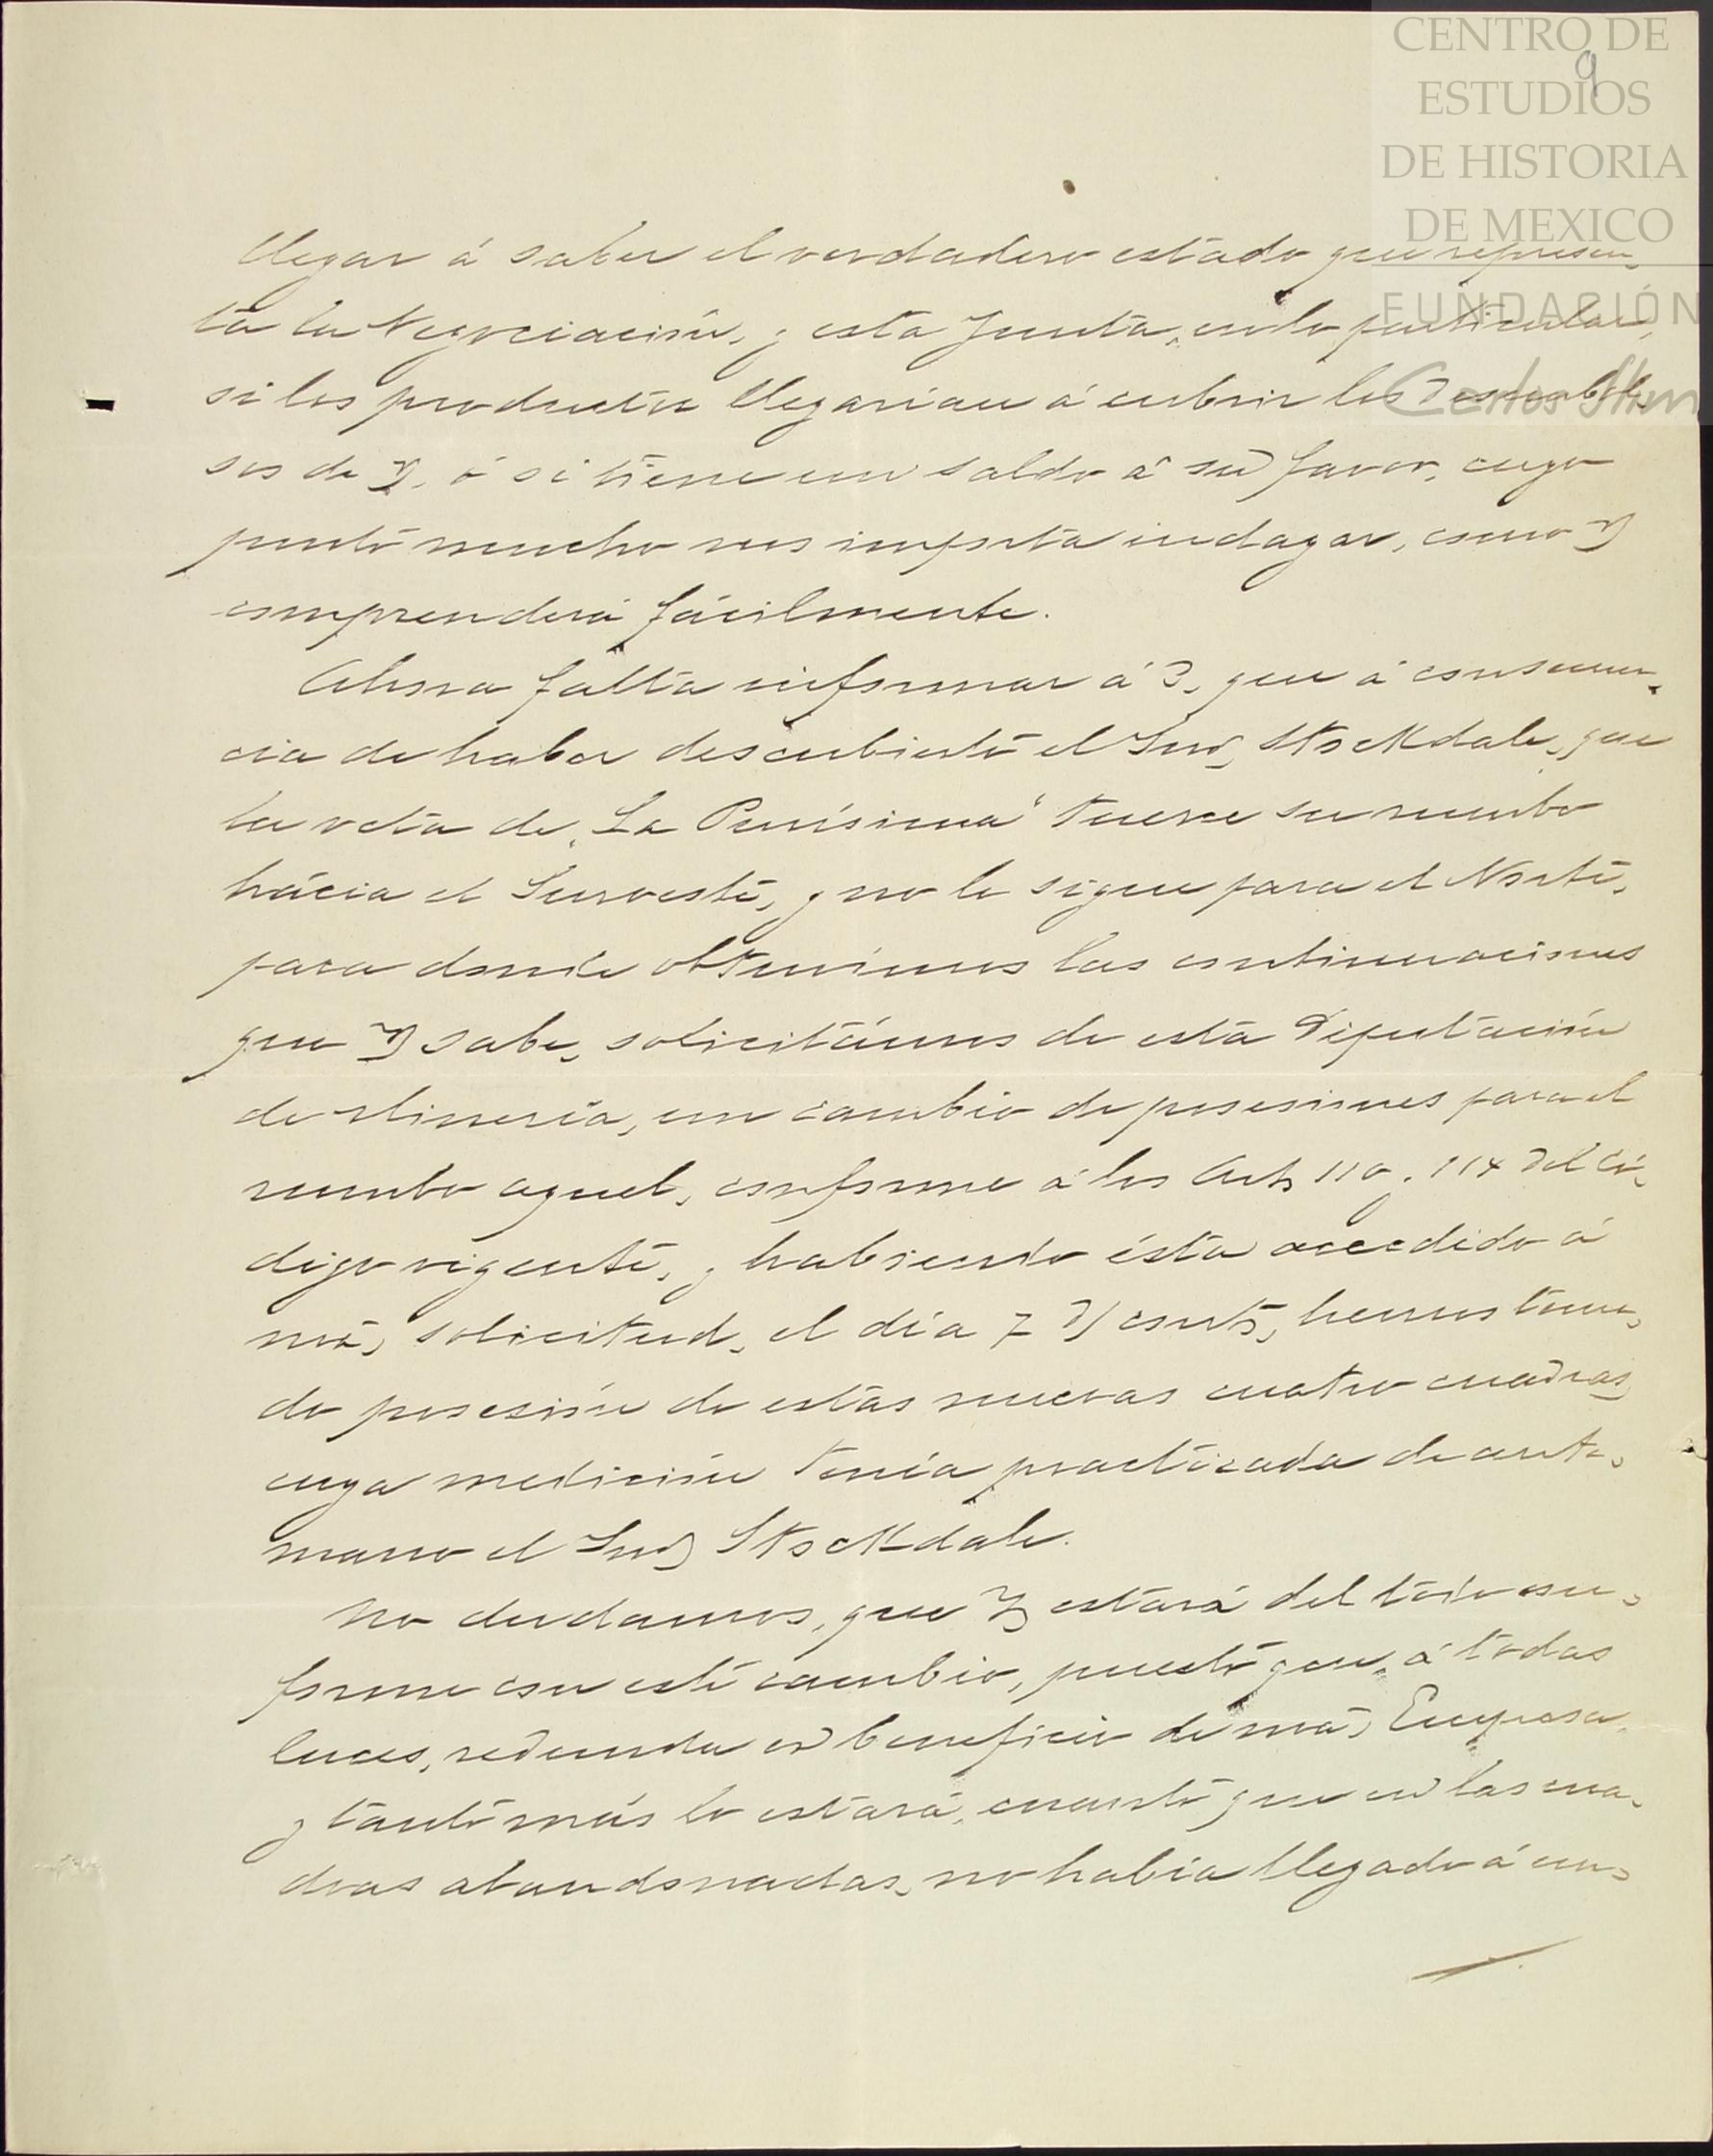 CENTRO DE
ESTUDIOS
DE HISTORIA
DE MEXICO
FUNDACIÓN
Carlos Slim
9
llegar á saber el verdadero estado que represen-
ta la Negociación, y esta Junta, en lo particular,
si los productos llegarían á cubrir los desembol-
sos de V, ó si tiene un saldo á su favor, cuyo
punto mucho nos importa indagar, como V
comprenderá fácilmente.
Ahora falta informar á V, que á consecuen-
cia de haber descubierto el Sr Stockdale, que
la veta de "La Purísima" tuerce su rumbo
hácia el Suroeste, y no lo sigue para el Norte,
para donde obtuvimos las continuaciones
que V sabe, solicitámos de esta Diputación
de Minería, un cambio de posesiones para el
rumbo aquel, conforme á los Arts 110 y 114 del Có-
digo vigente, y habiendo ésta accedido á
nra solicitud, el día 7 del corte, hemos toma-
do posesión de estas nuevas cuatro cuadras
cuya medición tenía practicada de ante-
mano el Sr Stockdale.
No dudamos, que V estará del todo con-
forme con este cambio, puesto que, á todas
luces, redunda en beneficio de nra Empresa,
y tanto más lo estará, cuanto que en las cua-
dras abandonadas, no había llegado á en-